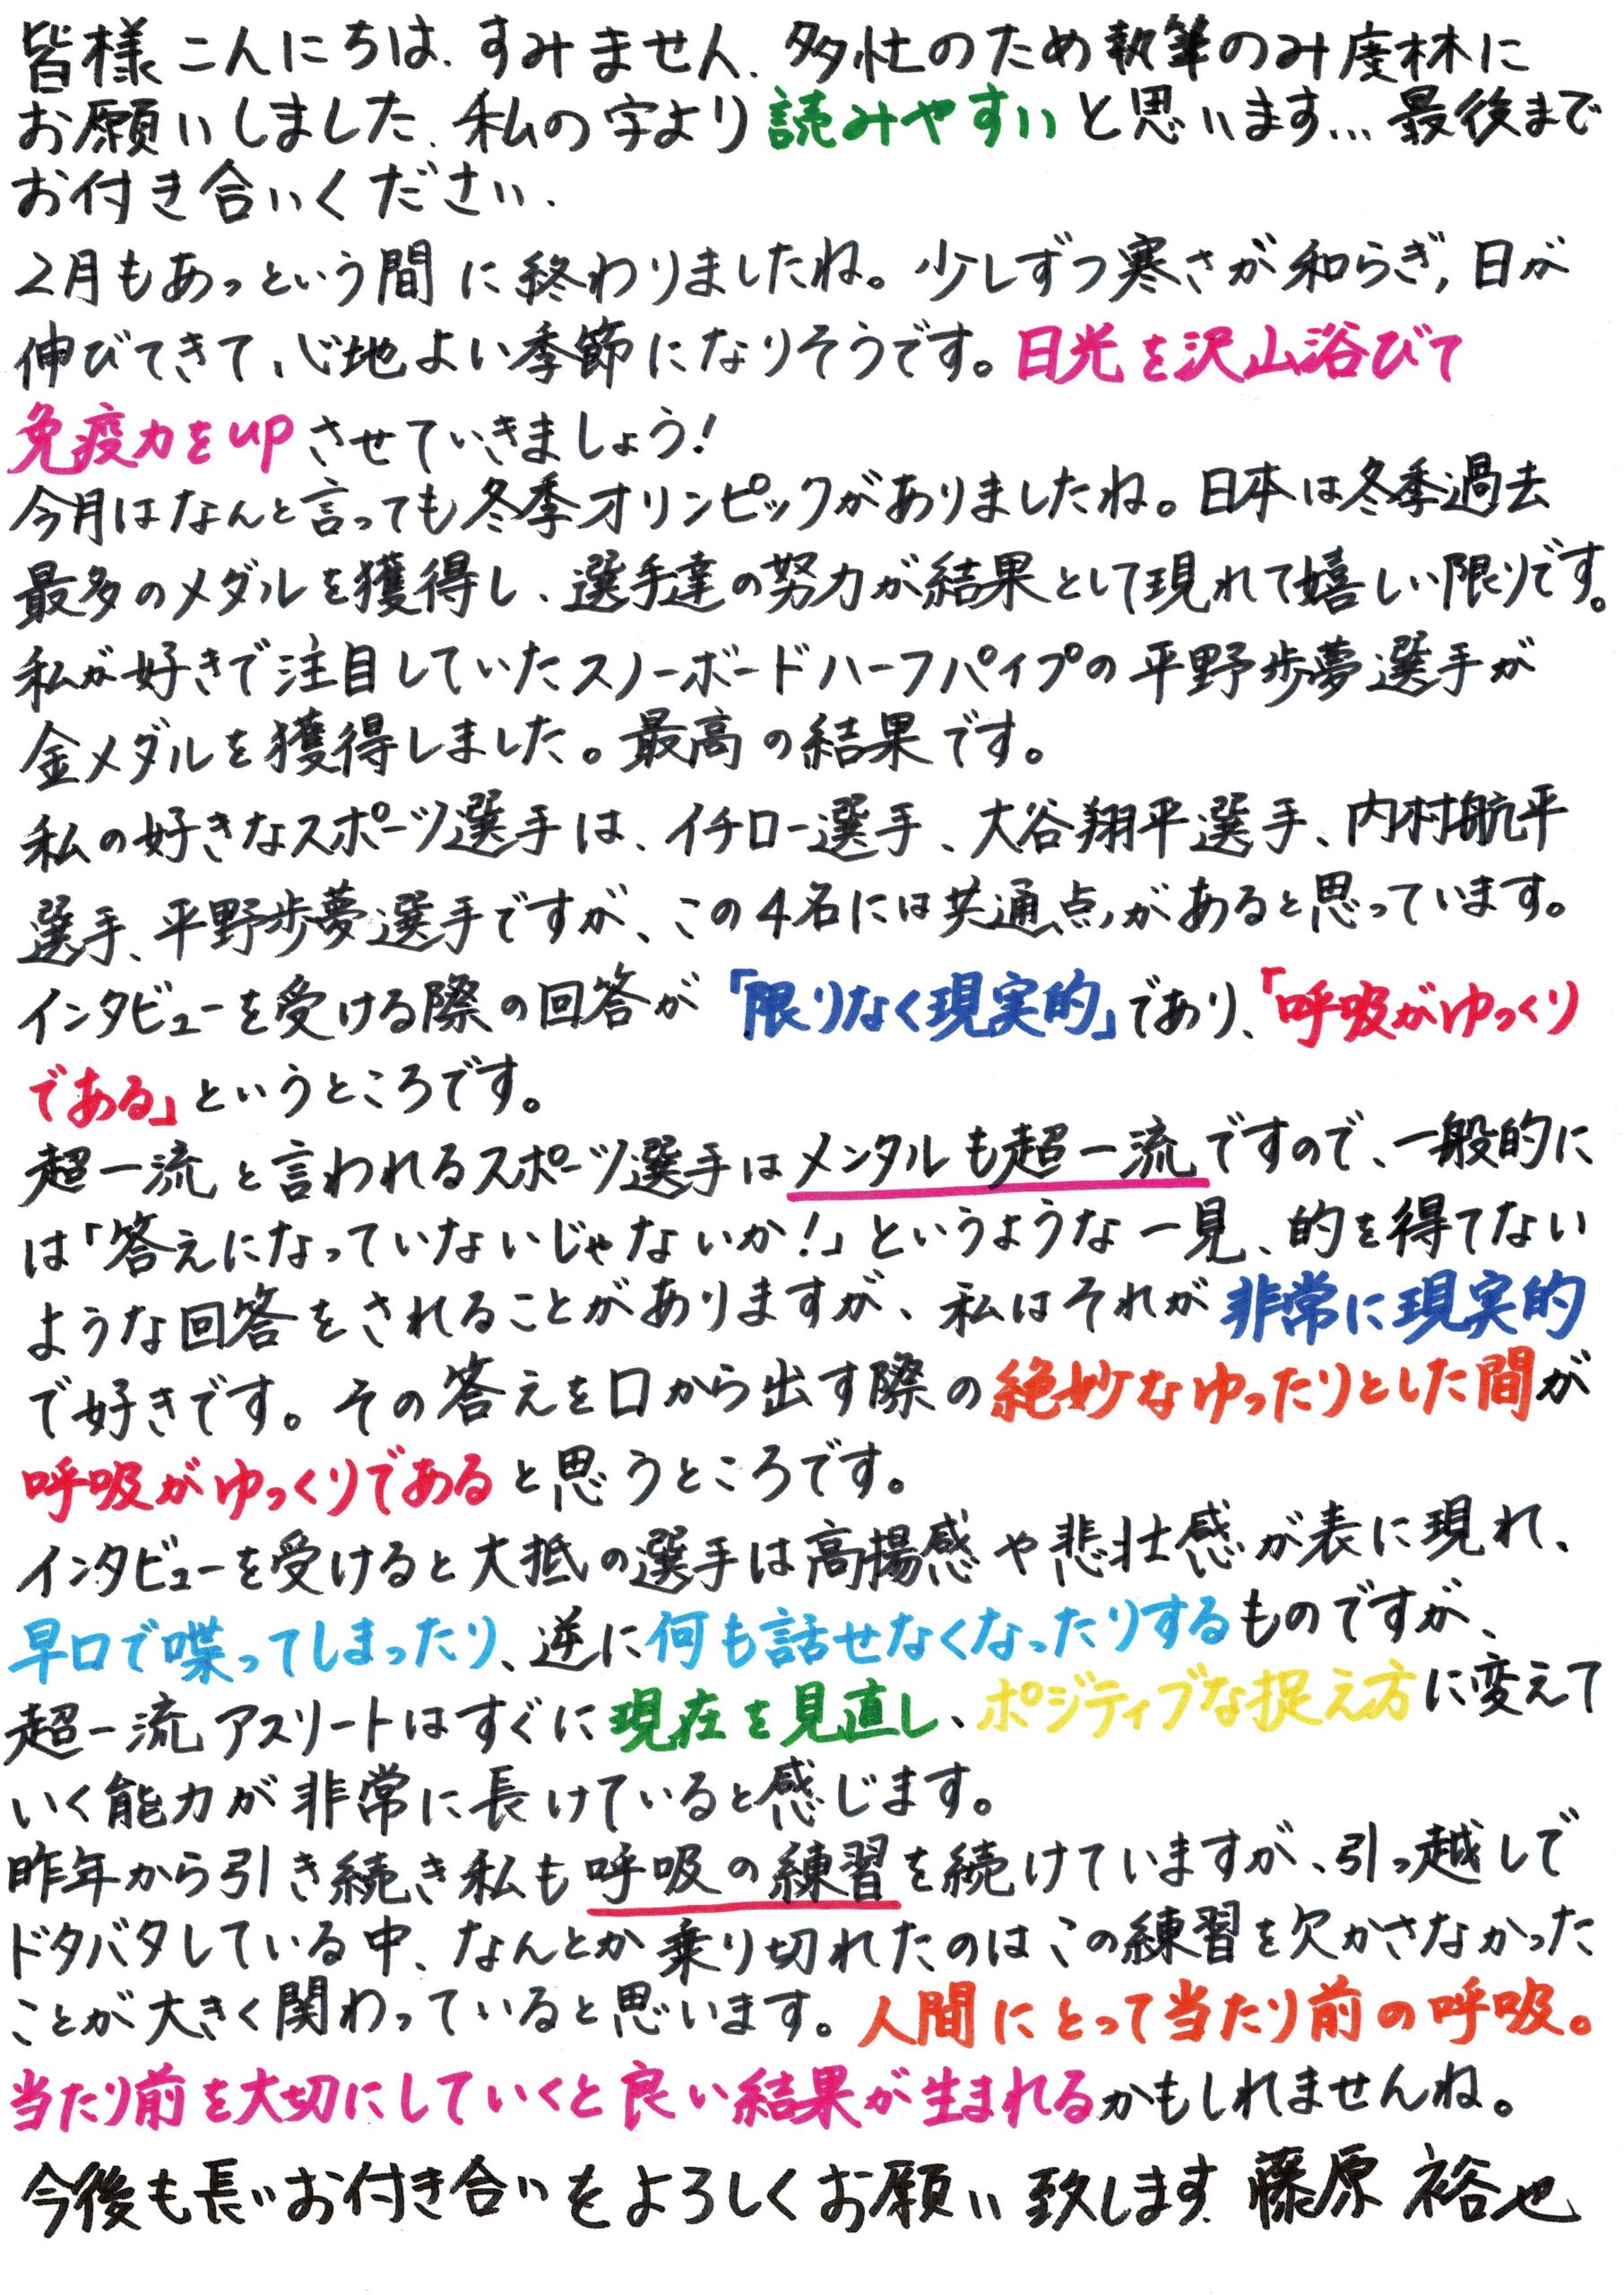 皆様こんにちは、すみません、多忙のため執筆のみ度林に
お願いしました、私の字より読みやすいと思います…最後まで
お付き合いください、
2月もあっという間に終わりましたね。少しずつ寒さが和らぎ,日が
伸びてきて、心地よい季節になりそうです。日光を沢山浴びて
免疫力をupさせていきましょう!
今月はなんと言っても冬季オリンピックがありましたね。日本は冬季過去
最多のメダルを獲得し、選手達の努力が結果として現れて嬉しい限りです。
私が好きで注目していたスノーボードハーフパイプの平野歩夢選手が
金メダルを獲得しました。最高の結果です。
私の好きなスポーツ選手は、イチロー選手、大谷翔平選手、内村航平
選手、平野歩夢選手ですが、この4名には共通点があると思っています。
インタビューを受ける際の回答が「限りなく現実的」であり、「呼吸がゆっくり
である」というところです。
超一流と言われるスポーツ選手はメンタルも超一流ですので、一般的に
は「答えになっていないじゃないか!」というような一見、的を得てない
ような回答をされることがありますが、私はそれが非常に現実的
で好きです。その答えを口から出す際の絶妙なゆったりとした間が
呼吸がゆっくりであると思うところです。
インタビューを受けると大抵の選手は高揚感や悲壮感が表に現れ、
早口で喋ってしまったり、逆に何も話せなくなったりするものですが、
超一流アスリートはすぐに現在を見直し、ポジティブな捉え方に変えて
いく能力が非常に長けていると感じます。
昨年から引き続き私も呼吸の練習を続けていますが、引っ越しで
ドタバタしている中、なんとか乗り切れたのはこの練習を欠かさなかった
ことが大きく関わっていると思います。人間にとって当たり前の呼吸。
当たり前を大切にしていくと良い結果が生まれるかもしれませんね。
今後も長いお付き合いをよろしくお願い致します、藤原 裕也